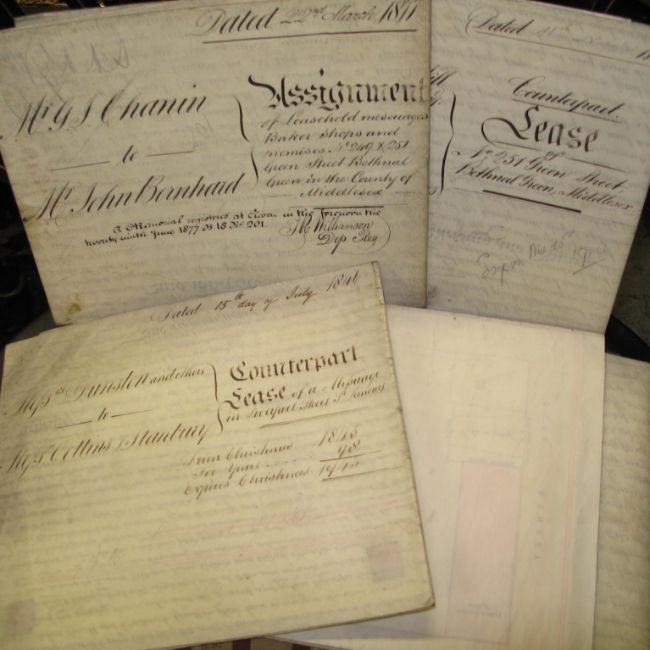 Dated 22nd March 1877
Mr G S Chanin
to
Mr John Bernhard
Assignment
of Leasehold messuages
Baker Shops and
premises No 249 & 251
Green Street Bethnal
Green in the County of
Middlesex
A Memorial registered at Eleven in the forenoon the
twenty ninth June 1877 B 18 No 201.
Williamson
Dep Reg
Dated
Counterpart
Lease
of
251 Green Street,
Bethnal Green, Middlesex
Dated 15th day of July 1846
Dunston and others
to
Collins & Stanbury
Counterpart
Lease of a Messuage
in Street St
From Christmas 1845
For Years 98
Expires Christmas